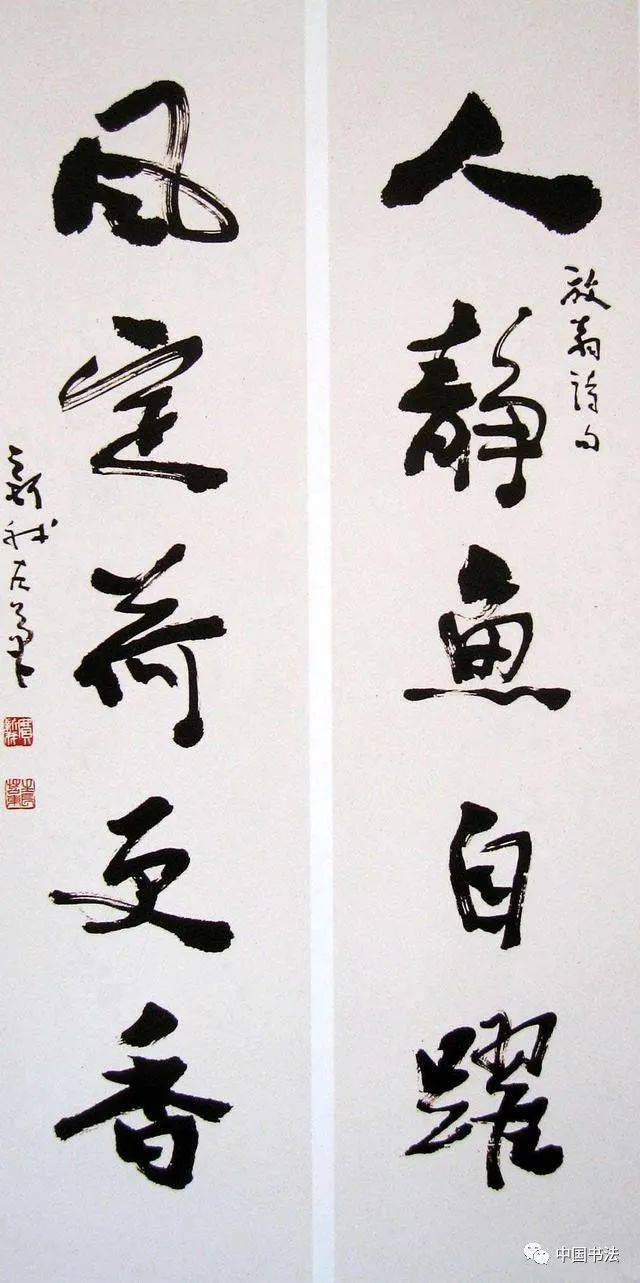 人静鱼自跃
放翁诗句
风定荷更香
中国书法